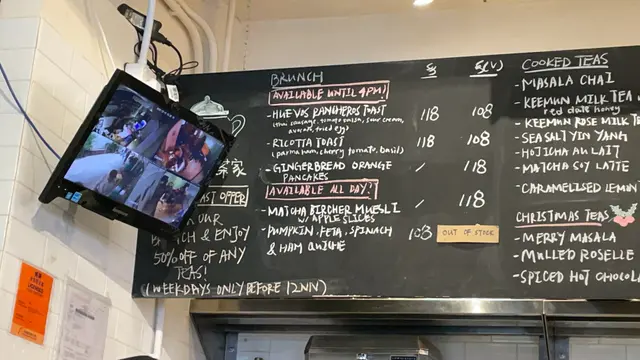 BRUNCH
$
$(V)
AVAILABLE UNTIL 4PM!
- HUEVOS RANCHEROS TOAST 118 108
(thai sausage, tomato onion, sour cream,
avocado, fried egg)
- RICOTTA TOAST 118 108
(parma ham, cherry tomato, basil)
- GINGERBREAD ORANGE / 118
PANCAKES
AVAILABLE ALL DAY!
- MATCHA BIRCHER MUESLI / 118
w/ APPLE SLICES
- PUMPKIN, FETA, SPINACH 108 OUT OF STOCK
& HAM QUICHE
COOKED TEAS
- MASALA CHAI
- KEEMUN MILK TEA
red date honey
- KEEMUN ROSE MILK TE
- SEA SALT YIN YANG
- HOJICHA AU LAIT
- MATCHA SOY LATTE
- CARAMELISED LEMON
CHRISTMAS TEAS
- MERRY MASALA
- MULLED ROSELLE
- SPICED HOT CHOCOLA
家
AST OFFER
OUR
& ENJOY
50% OFF OF ANY
TEAS!
(WEEKDAYS ONLY BEFORE 12NN)